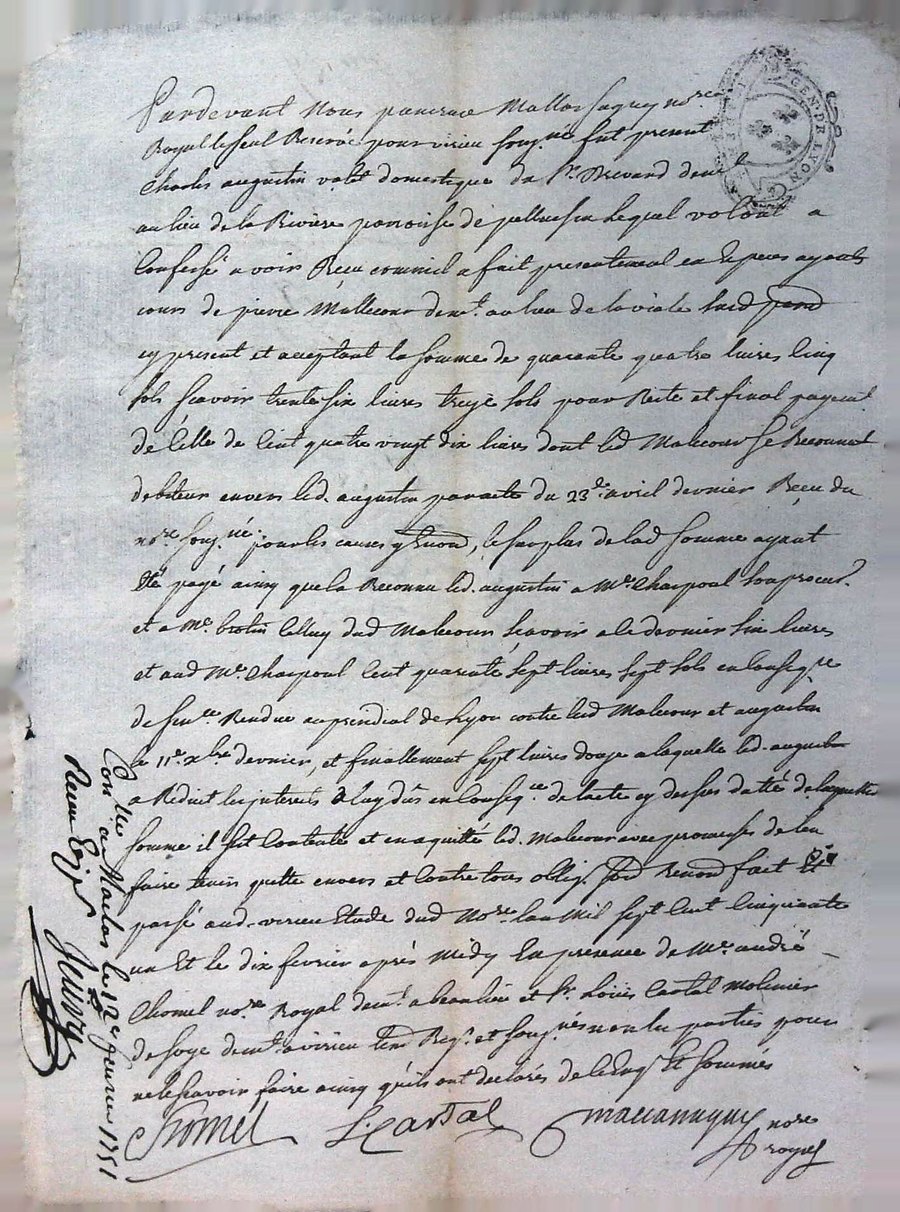 GEN. DE LYON
Pardevant Nous pancrace Mallassagny no.re
Royal le seul Reservé pour virieu soug.né fut present
Charles augustin valet domestique du S.r Brevard dem.t
au lieu de la Rivière parroisse de pellussin lequel volont a
Confessé avoir Receu comme il a fait presentement en Especes ayants
cours de pierre Mallecour dem.t au lieu de la viale
cy present et acceptant la somme de quarante quatre livres Cinq
sols scavoir trente six livres treize sols pour Reste et final payement
de Celle de Cent quatre vingt dix livres dont led Malecour se Reconnut
debiteur envers led. augustin par acte du 23.e avril dernier Reçu du
no.re soug.né pour les causes y Enond, le surplus de lad somme ayant
Eté payé ainsy que la Reconnu led. augustin a M.e Charpoul son procur.
et a M.e brotin Celluy dud Malecour scavoir a le dernier six livres
et aud M.e Charpoul Cent quarante sept livres sept sols en Conseq.ce
de sen.ce Rendue au presidial de Lyon contre led Malecour et augustin
le 11.e xbre dernier, et finallement sept livres douze a laquelle led. augustin
a Reduit les interets a luy dûs en Conseq.ce de l'acte cy dessus datté de laquelle
somme il s'est Contenté et en a quitté led. Malecour avec promesses de l'en
faire tenir quitte envers et Contre tous oblig. Renond fait Et
passé aud. virieu Etude dud No.re l'an Mil sept Cent Cinquante
un Et le dix fevrier après Midy En presence de M.e andré
Chomel no.re Royal dem.t a beaulieu et S.r Louis Cartal Molinier
de soye dem.t a virieu tem Req.s et soug.nés non les parties pour
ne le scavoir faire ainsy qu'ils ont declarés de ce Enq.s Et sommés
Chomel L. Cartal no.re
royal
Con.llé a Maclas le 12.e fevrier 1751
Receu